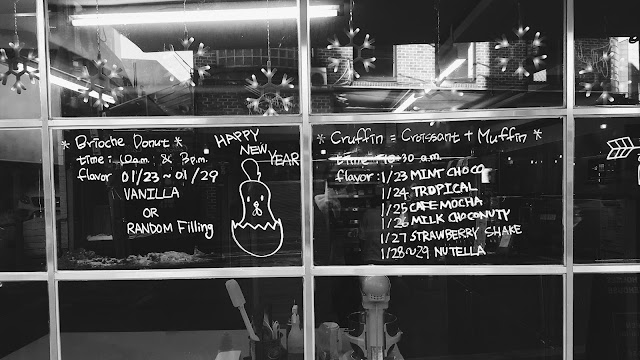 * Brioche Donut *
time : 10a.m. & 3p.m.
flavor 01/23 ~ 01/29
VANILLA
OR
RANDOM Filling
HAPPY
NEW
YEAR
* Cruffin = Croissant + Muffin *
time : 10:30 a.m.
flavor : 1/23 MINT CHOCO
1/24 TROPICAL
1/25 CAFE MOCHA
1/26 MILK CHOCONUTY
1/27 STRAWBERRY SHAKE
1/28~29 NUTELLA